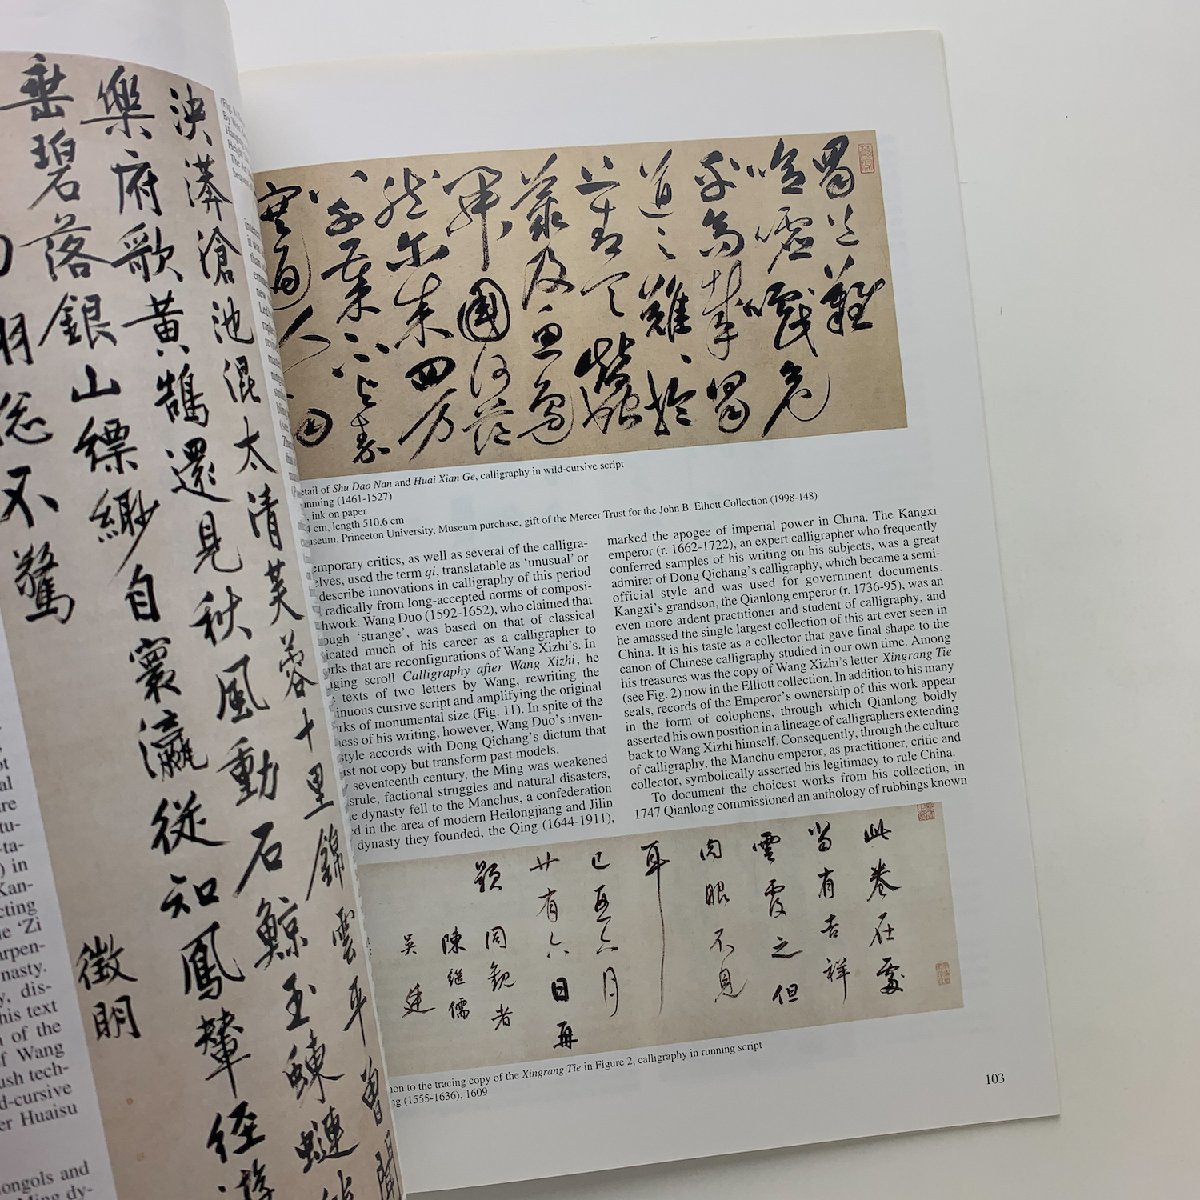 泱漭滄池混太清芙蓉十里錦雲平曾聞
樂府歌黃鵠還見秋風動石鯨玉蝀
垂碧落銀山縹緲自寰瀛從知鳳輦經游
总不驚
徵明
al
are
tu-
-ta-
) in
Kan-
cting
e 'Zi
arpen-
nasty.
y, dis-
his text
n of the
f Wang
ush tech-
d-cursive
er Huaisu
ongols and
Ming dy-
蜀道難
噫嘘嚱危
乎高哉蜀
道之難難於
上青天蠶
叢及魚鳧
開國何茫
然尔来四万
八千歲不与秦
塞通人
etail of Shu Dao Nan and Huai Xian Ge, calligraphy in wild-cursive script
nming (1461-1527)
, ink on paper
cm, length 510.6 cm
useum, Princeton University, Museum purchase, gift of the Mercer Trust for the John B. Elliott Collection (1998-148)
emporary critics, as well as several of the calligra-
elves, used the term qi, translatable as 'unusual' or
describe innovations in calligraphy of this period
radically from long-accepted norms of composi-
hwork. Wang Duo (1592-1652), who claimed that
ough 'strange', was based on that of classical
icated much of his career as a calligrapher to
rks that are reconfigurations of Wang Xizhi's. In
ging scroll Calligraphy after Wang Xizhi, he
texts of two letters by Wang, rewriting the
inuous cursive script and amplifying the original
rks of monumental size (Fig. 11). In spite of the
ness of his writing, however, Wang Duo's inven-
style accords with Dong Qichang's dictum that
ust not copy but transform past models.
seventeenth century, the Ming was weakened
srule, factional struggles and natural disasters,
e dynasty fell to the Manchus, a confederation
d in the area of modern Heilongjiang and Jilin
dynasty they founded, the Qing (1644-1911),
marked the apogee of imperial power in China. The Kangxi
emperor (r. 1662-1722), an expert calligrapher who frequently
conferred samples of his writing on his subjects, was a great
admirer of Dong Qichang's calligraphy, which became a semi-
official style and was used for government documents.
Kangxi's grandson, the Qianlong emperor (r. 1736-95), was an
even more ardent practitioner and student of calligraphy, and
he amassed the single largest collection of this art ever seen in
China. It is his taste as a collector that gave final shape to the
canon of Chinese calligraphy studied in our own time. Among
his treasures was the copy of Wang Xizhi's letter Xingrang Tie
(see Fig. 2) now in the Elliott collection. In addition to his many
seals, records of the Emperor's ownership of this work appear
in the form of colophons, through which Qianlong boldly
asserted his own position in a lineage of calligraphers extending
back to Wang Xizhi himself. Consequently, through the culture
of calligraphy, the Manchu emperor, as practitioner, critic and
collector, symbolically asserted his legitimacy to rule China.
To document the choicest works from his collection, in
1747 Qianlong commissioned an anthology of rubbings known
此卷在處
當有吉祥
雲霞之但
肉眼不見
耳
己酉六月
廿有六日再
題
同觀者
陳繼儒
吳廷
hon to the tracing copy of the Xingrang Tie in Figure 2, calligraphy in running script
ng (1555-1636), 1609
103